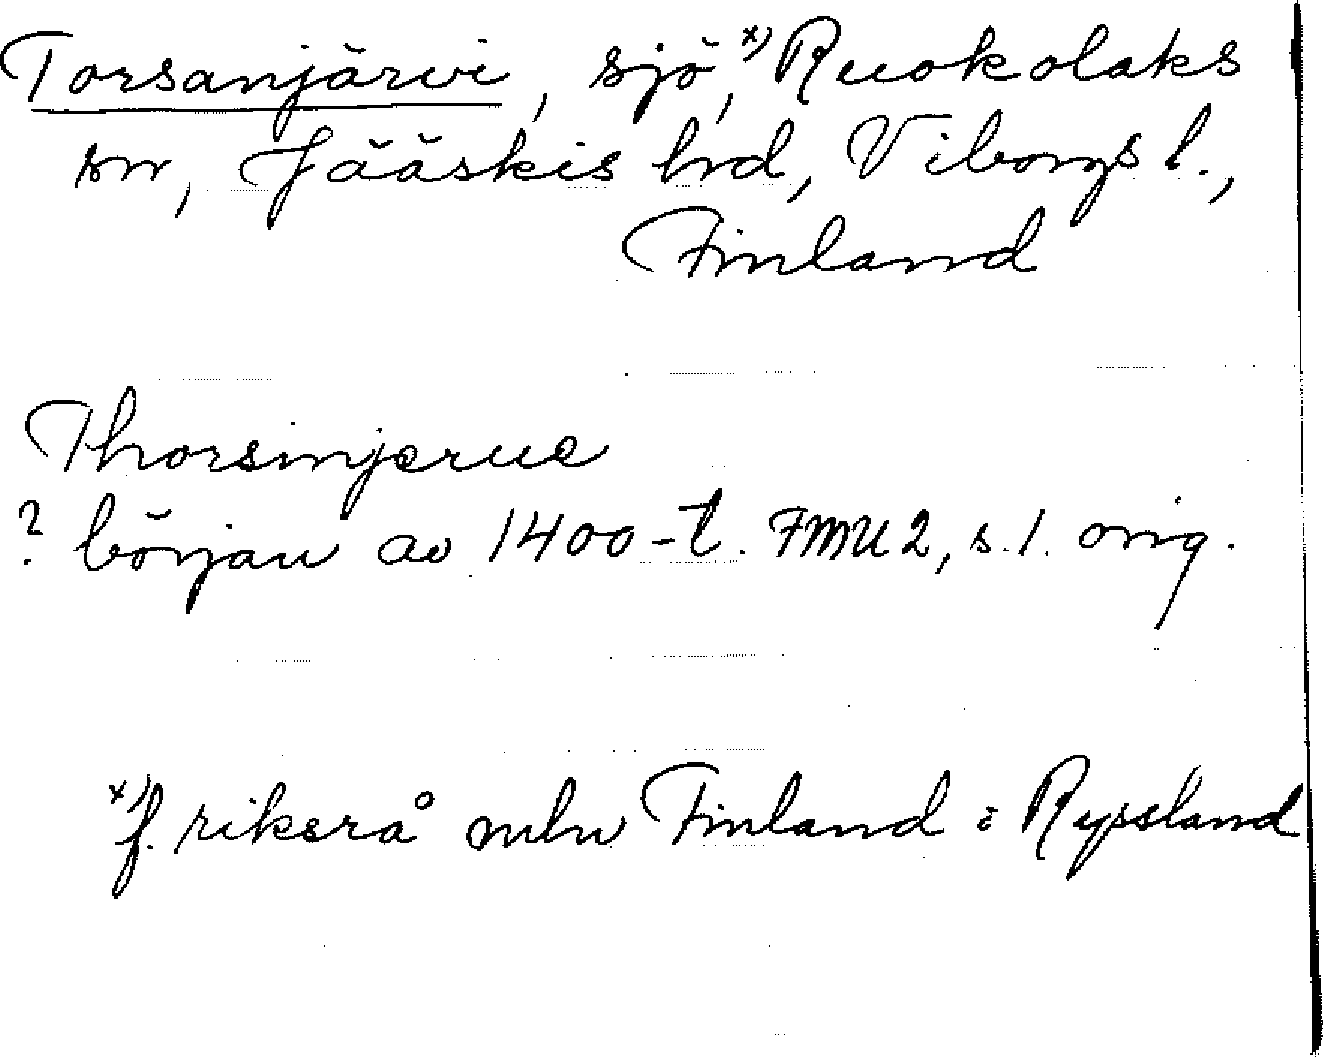 Torsanjärvi, sjö,ˣ⁾ Ruokolaks
sn, Jääskis hrd, Viborgs l.,
Finland
Thorsinjærue
? början av 1400-t. FMU 2, s. 1. orig.
ˣ⁾f. riksrå mln Finland : Ryssland